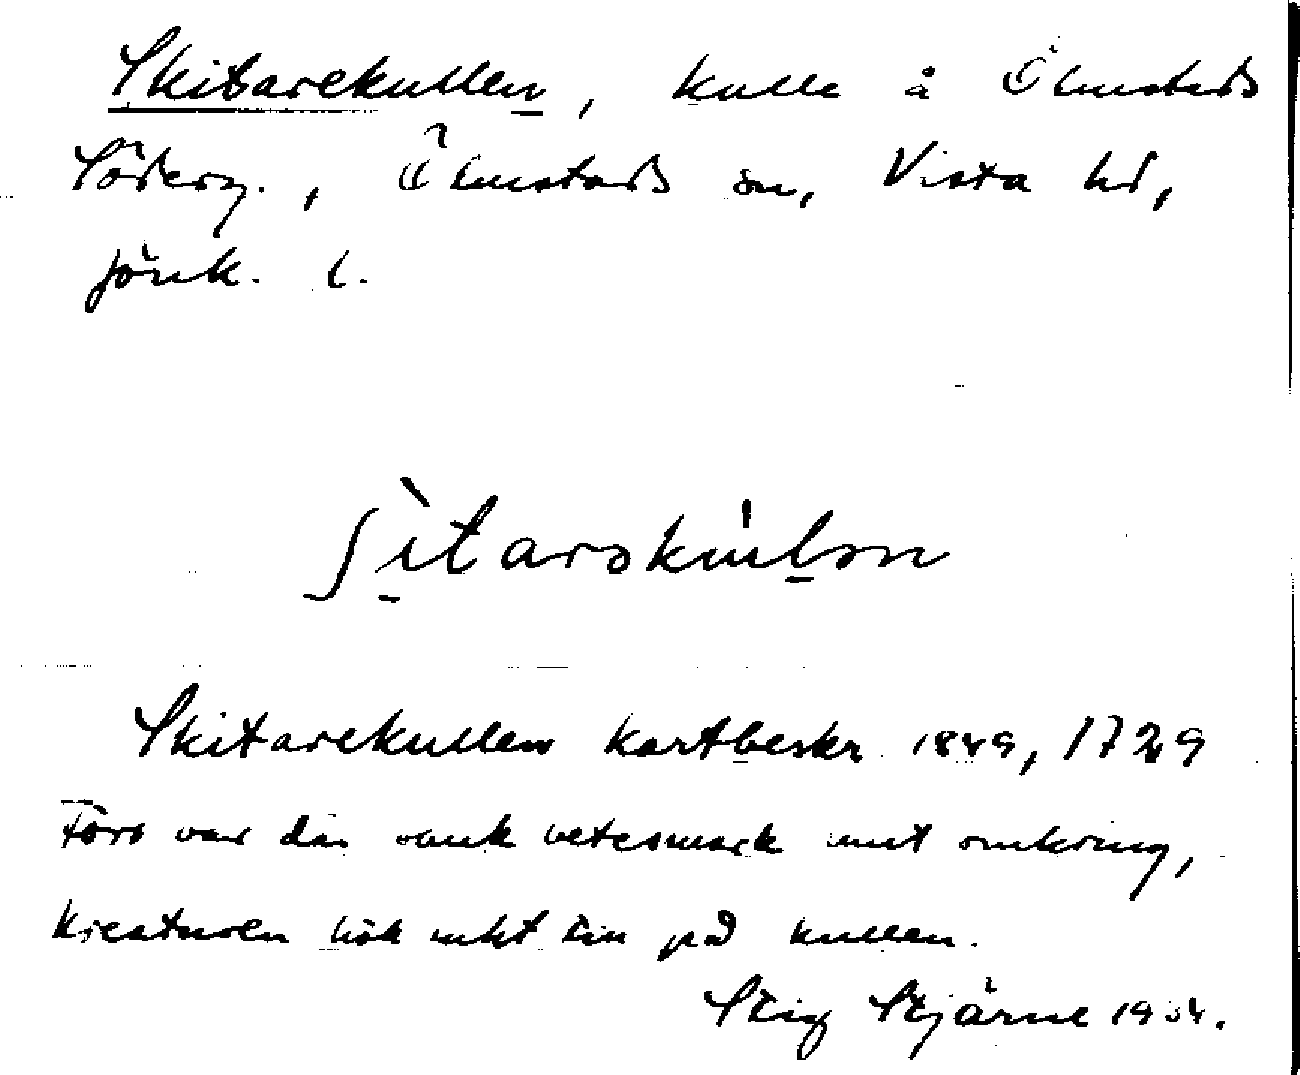 Skitarekullen, kulle å Ölmstads
Söderg., Ölmstads sn, Vista hd,
Jönk. l.
ʃìtarəku̍lən
Skitarekullen kartbeskr 1849, 1729
Förr var där sank betesmark runt omkring,
kreaturen höll till på kullen.
Stig Stjärne 19 4.